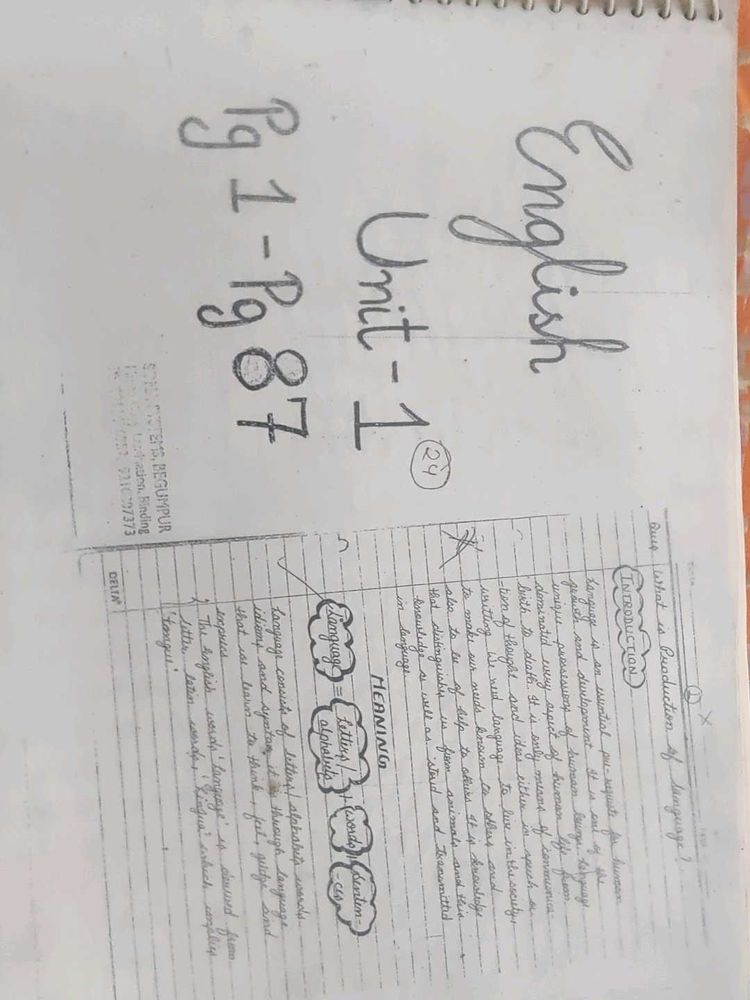 English
Unit-1
Pg 1-Pg 87
24
BEGUMPUR
Binding
② X
Ques What is Production of language?
INTRODUCTION
Language is an essential pre-requisite for human
growth and development. It is one of the
unique possessions of human beings. Language
dominated every aspect of human life from
birth to death. It is only means of communica-
-tion of thought and ideas either in speech or
writing. We need language to live in the society,
to make our needs known to others and
also to be of help to others. It is knowledge
that distinguishes us from animals and this
knowledge is well as stord and transmitted
in language
MEANING
language = letters/alphabets + words + Senten-ces
Language consists of letters/alphabets, words
idioms and syntax, it is through language
that we learn to think, feel, judge and
express
The English words 'language' is derived from
letter latin words, 'lingua' which implies
'tongue'
DELTA